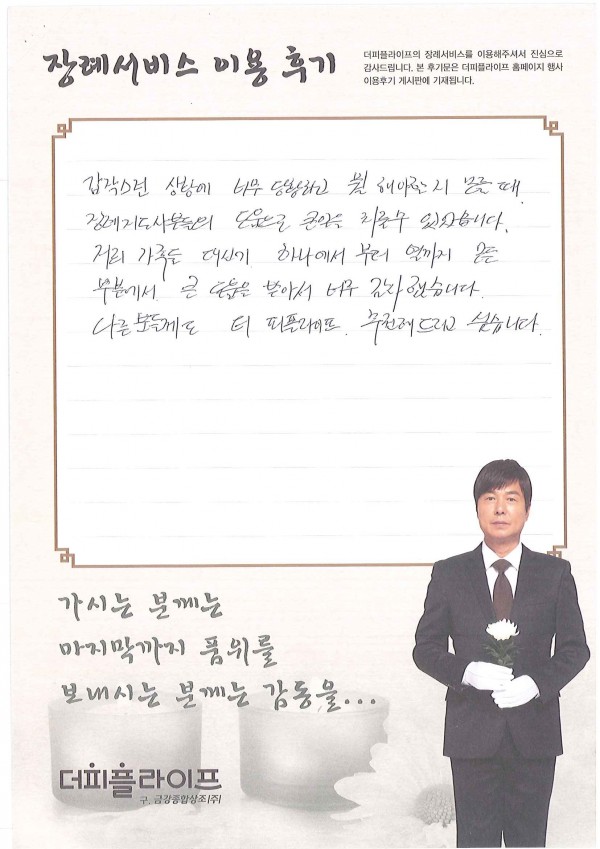 장례서비스 이용 후기
더피플라이프의 장례서비스를 이용해주셔서 진심으로
감사드립니다. 본 후기문은 더피플라이프 홈페이지 행사
이용후기 게시판에 기재됩니다.
갑작스런 상황에 너무 당황하고 뭘 해야할지 모를 때,
장례지도사분들의 도움으로 큰일을 치를수 있었습니다.
저희 가족들 대신 하나에서 부터 열까지 모든
부분에서 큰 도움을 받아서 너무 감사했습니다.
다른 분들께도 더 피플라이프 추천해드리고 싶습니다.
가시는 분께는
마지막까지 품위를
보내시는 분께는 감동을...
더피플라이프
구. 금강종합상조(주)